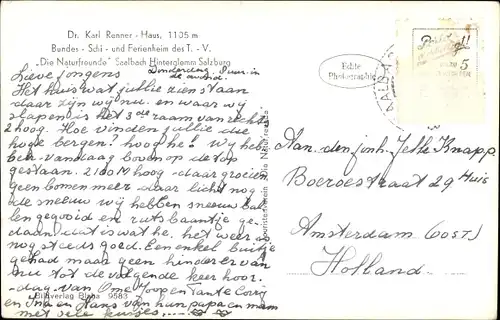 Dr. Karl Renner - Haus, 1105 m
Bundes - Schi - und Ferienheim des T. - V.
„Die Naturfreunde" Saalbach Hinterglemm Salzburg
Lieve jongens Donderdag
Het huis wat jullie zien staan
daar zijn wij nu. en waar wij
slapen is het 3de raam van rechts
2 hoog. Hoe vinden jullie die
hoge bergen? hoog he! Wij heb
ben vandaag boven op de top
gestaan. 2100 M hoog - daar groeien
geen bomen meer. daar licht nog
de sneeuw wij hebben sneeuw bal
len gegooid en ruts baantje ge-
daan. dat is wat he. het weer is
nog steeds goed. Een enkel buitje
gehad maar geen hinder er van
nu tot de volgende keer hoor.
dag. van Ome Joop en Tante Corrij
en Ina en Hans van hun papa en mam
met vele kusjes
Bildverlag Blaha 9583
Echte
Photographie
5
Aan. den jonh. Jelle Knapp
Boeroestraat 29 Huis
Amsterdam (Oost)
Holland